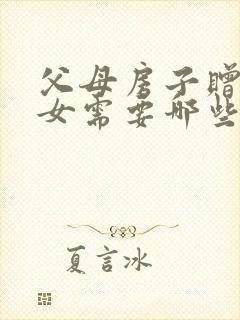 父母房子赠
女需要哪些
夏言冰